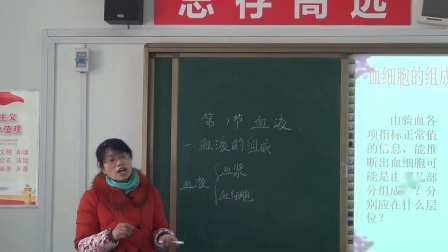 志存高远
第1节 血液
一.血液的组成
血液
血浆
血细胞
血细胞的组成
由验血各
项指标正常值
的信息,能推
断出血细胞可
能是由
部
分组成
?分
别应在什么层
位?
主义
价值观
文明 和谐
公正 法治
诚信 友善